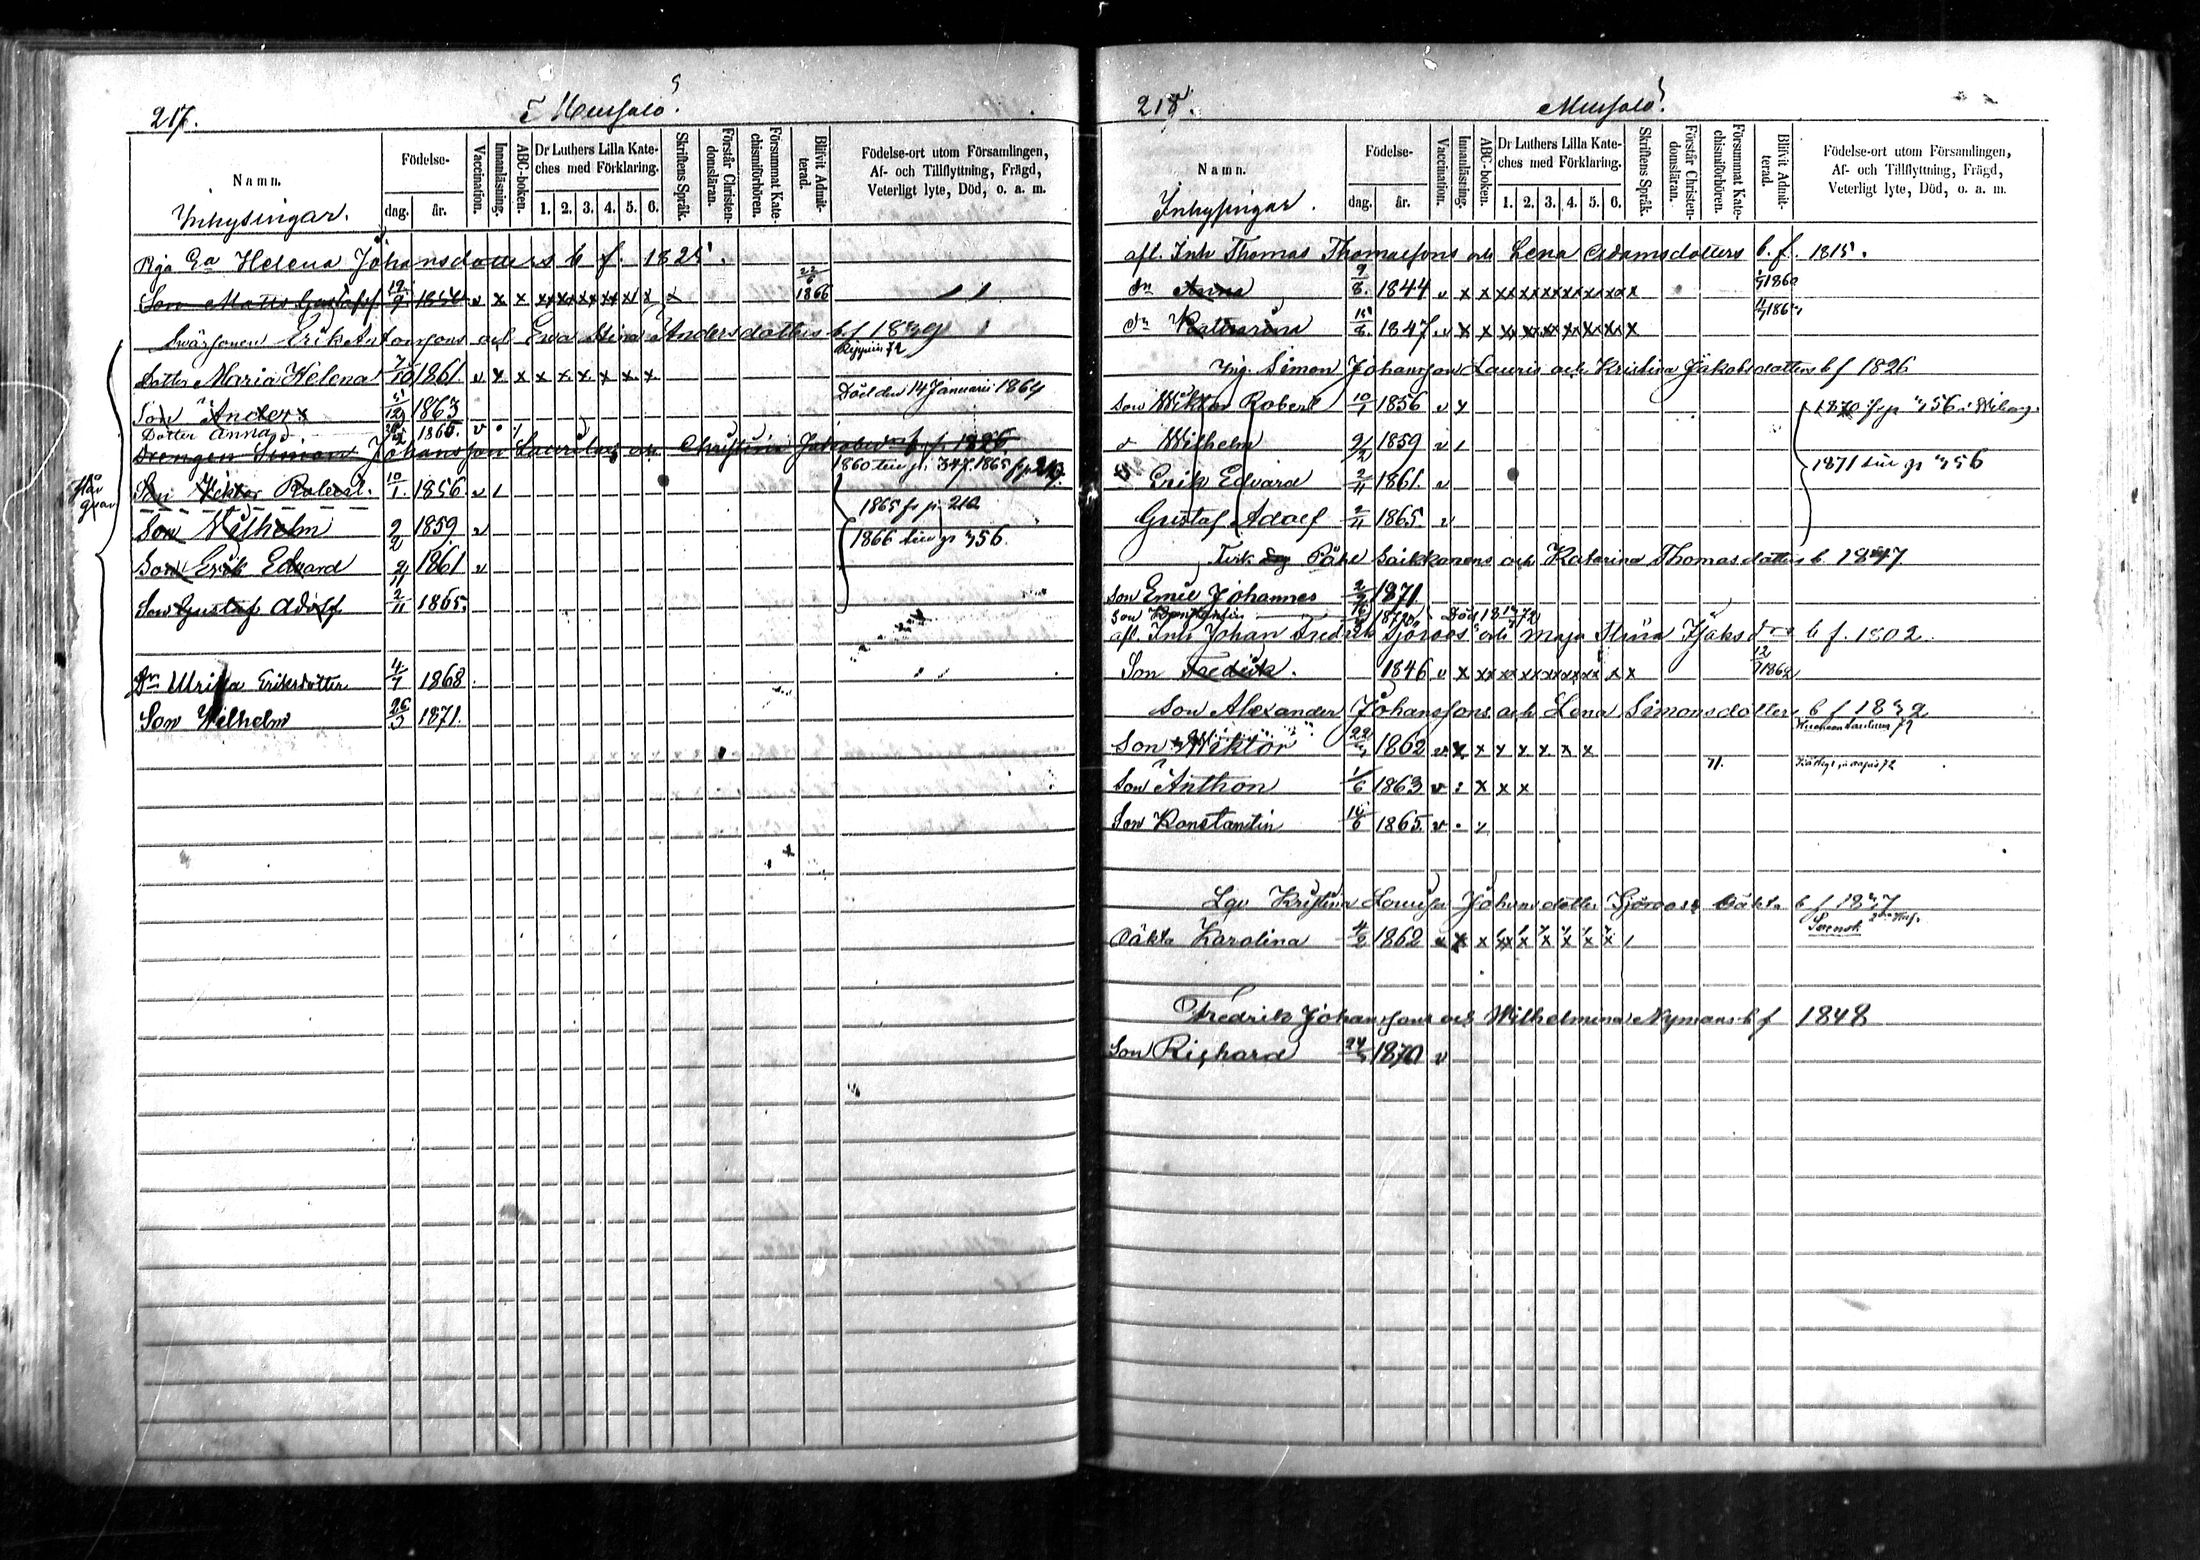 217.
Mussalö.
Namn.
Inhysingar.
Födelse-
dag. år.
Vaccination.
Innanläsning.
ABC-boken.
Dr Luthers Lilla Kate-
ches med Förklaring.
1. 2. 3. 4. 5. 6.
Skriftens Språk.
Förstår Christen-
domsläran.
Försummat Kate-
chismiförhören.
Blifvit Admit-
terad.
Födelse-ort utom Församlingen,
Af- och Tillflyttning, Frägd,
Veterligt lyte, Död, o. a. m.
Helena Johansdotters b. f. 1825.
Son Matts Gustaf 1850 v x x 1866
Erik Antonsons och Eva Stina Andersdotters b f 1839
Dotter Maria Helena 7/10 1861 v x x x x x x x
Son Anders 5/12 1863 Död den 14 Januarii 1864
Dotter Anna 1865. v
Drengen Simon Johansson Lauris och Christina b f 1826
1860 till p. 347. 1865 fr p
Son Viktor Robert. 10/1. 1856 v
1865 fr p. 212
Son Wilhelm 2/2 1859 v
1866 till p 356.
Son Erik Edvard 2/11 1861 v
Son Gustaf Adolf 2/11 1865.
Dr Ulrika Eriksdotter 4/7 1868
Son Wilhelm 26/3 1871.
218.
Mussalö.
Namn.
Inhysingar.
Födelse-
dag. år.
Vaccination.
Innanläsning.
ABC-boken.
Dr Luthers Lilla Kate-
ches med Förklaring.
1. 2. 3. 4. 5. 6.
Skriftens Språk.
Förstår Christen-
domsläran.
Försummat Kate-
chismiförhören.
Blifvit Admit-
terad.
Födelse-ort utom Församlingen,
Af- och Tillflyttning, Frägd,
Veterligt lyte, Död, o. a. m.
afl. Inh Thomas Thomassons och Lena Adamsdotters b. f. 1815.
dr Anna 9/8. 1844 v x x 1860
dr Katharina 15/8 1847 v x x
Simon Johansson Lauris och Kristina Jakobsdotters b f 1826
Son Wiktor Robert 10/1 1856 v 1870 fr p 356
Wilhelm 2/2 1859 v
1871 till p 356
Erik Edvard 2/11 1861. v
Gustaf Adolf 2/11 1865 v
Påhl Saikkonens och Katarina Thomasdotters b. 1847
Son Emil Johannes 2/2 1871.
Son Konstantin Död 18 72
afl. Inh Johan Fredrik Sjöroos och Maja Stina b f. 1802
Son Fredrik. 1846 v x 1862
Son Alexander Johanssons och Lena Simonsdotters b f 1832
Son Wiktor 22 1862 v x x x x x x x
71.
Son Anthon 1/6 1863 v : x x x
Son Konstantin 1865 v
Kristina Lovisa Johansdotter Sjöroos oäkta b f 1837
Svensk
oäkta Karolina 1862 v x x x x x x x x
Fredrik Johanssons och Wilhelmina Nymans b f 1848
Son Richard 24 1870 v